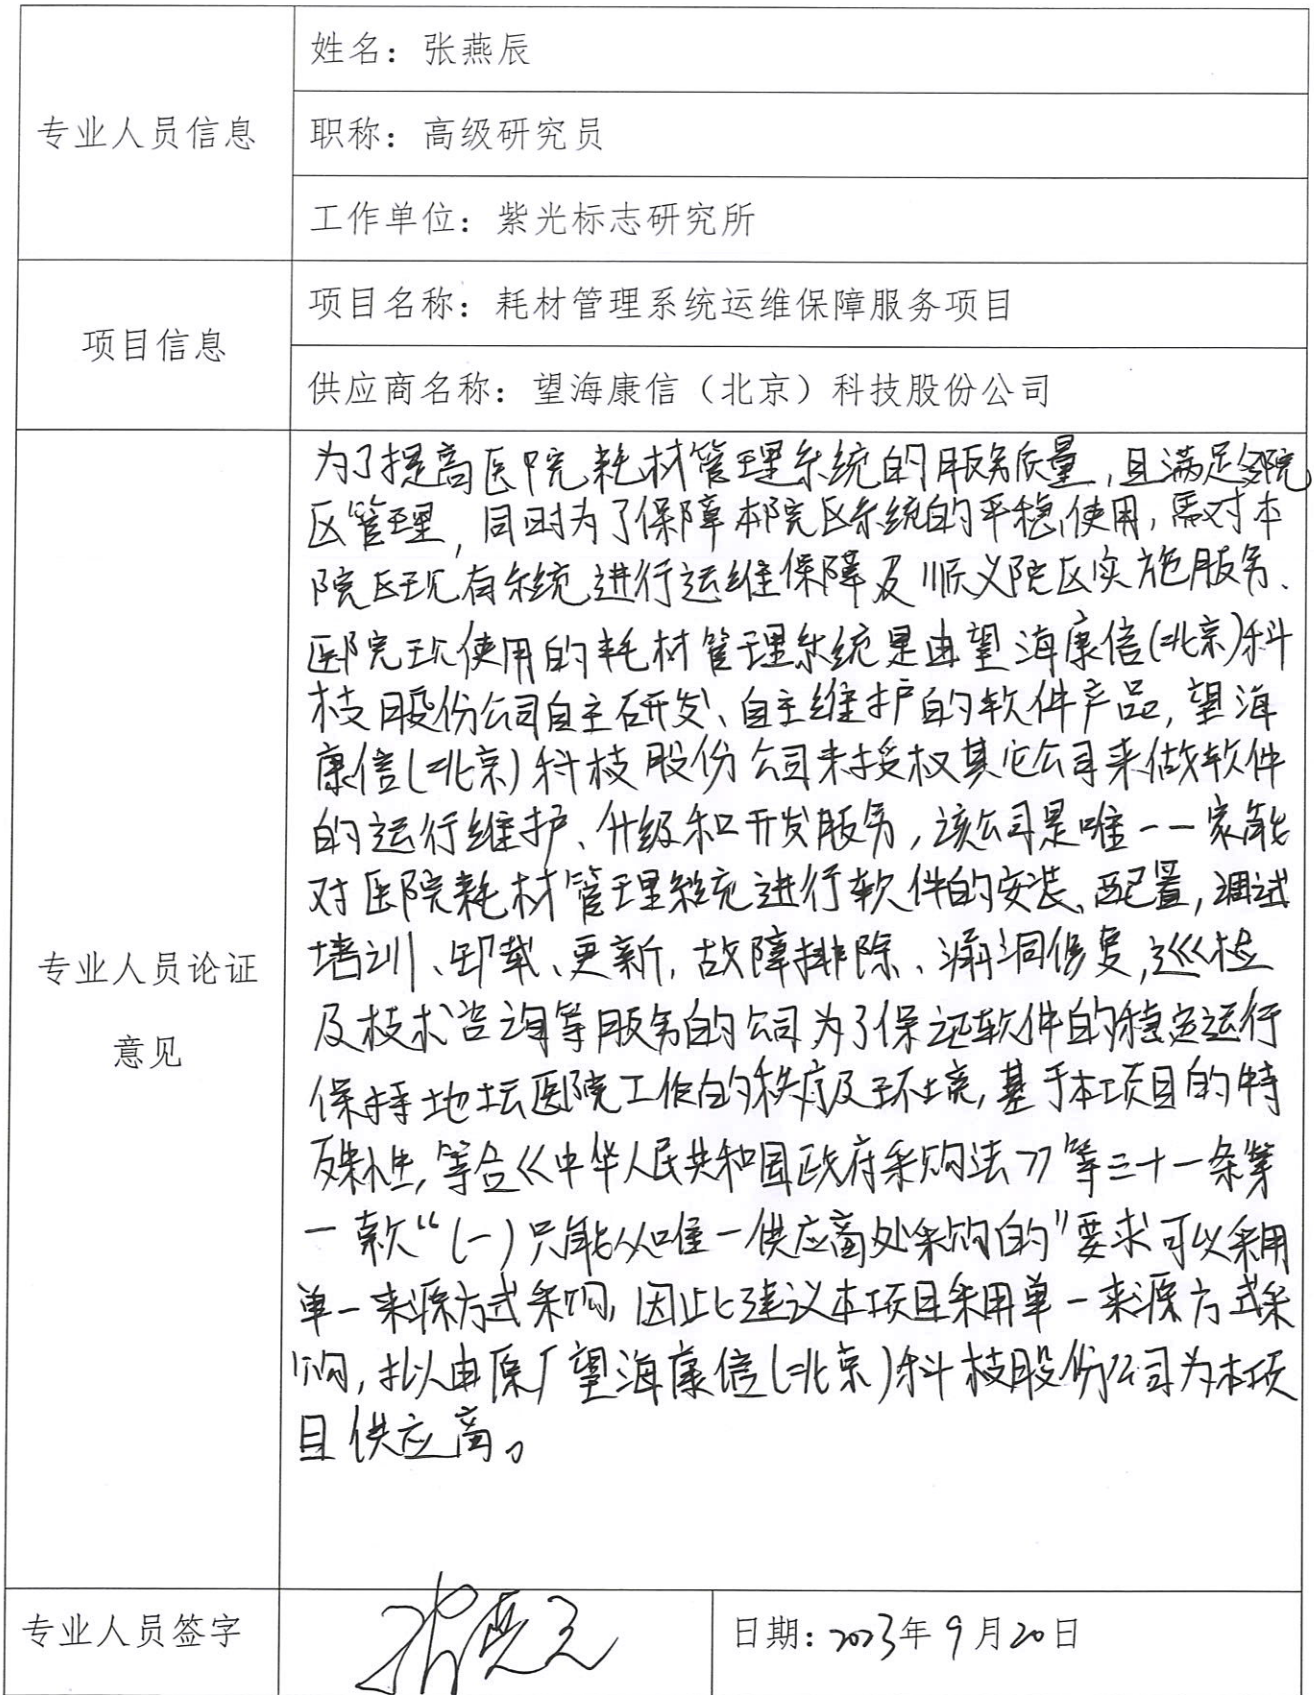 专业人员信息
姓名：张燕辰
职称：高级研究员
工作单位：紫光标志研究所
项目信息
项目名称：耗材管理系统运维保障服务项目
供应商名称：望海康信（北京）科技股份公司
专业人员论证
意见
为了提高医院耗材管理系统的服务质量,且满足多院
区管理,同时为了保障本院区系统的平稳使用,需对本
院区现有系统进行运维保障及顺义院区实施服务、
医院现使用的耗材管理系统是由望海康信(北京)科
技股份公司自主研发、自主维护的软件产品,望海
康信(北京)科技股份公司未授权其它公司来做软件
的运行维护、升级和开发服务,该公司是唯一一家能
对医院耗材管理系统进行软件的安装、配置,调试
培训、卸载、更新,故障排除、漏洞修复,巡检
及技术咨询等服务的公司为了保证软件的稳定运行
保持地坛医院工作的秩序及环境,基于本项目的特
殊性,符合《中华人民共和国政府采购法》第三十一条第
一款“(一)只能从唯一供应商处采购的”要求可以采用
单一来源方式采购,因此建议本项目采用单一来源方式采
购,拟由原厂望海康信(北京)科技股份公司为本项
目供应商。
专业人员签字
张燕辰
日期：2023年9月20日